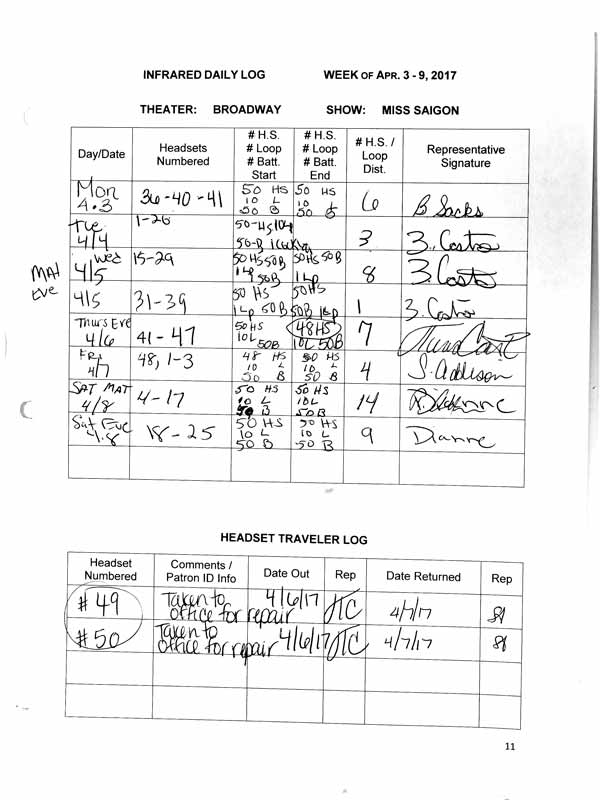 INFRARED DAILY LOG WEEK OF APR. 3 - 9, 2017
THEATER: BROADWAY SHOW: MISS SAIGON
Day/Date Headsets Numbered # H.S. # Loop # Batt. Start # H.S. # Loop # Batt. End # H.S. / Loop Dist. Representative Signature
Mon 4.3 36-40-41 50 HS 10 L 50 B 50 HS 10 L 50 B 6 B Sacks
Tue 4/4 1-26 50-HS 50-B 3 3. Castro
MAT Wed 4/5 15-29 50HS 50B 1Lp 50B 50HS 50B 1Lp 8 3. Castro
Eve 4/5 31-39 50 HS 1Lp 50B 50HS 50B 1Lp 1 3. Castro
Thurs Eve 4/6 41-47 50HS 10L 50B 48HS 10L 50B 7
Fri 4/7 48, 1-3 48 HS 10 L 50 B 50 HS 10 L 50 B 4 S. Addison
SAT MAT 4/8 4-17 50 HS 10 L 50 B 50 HS 10L 50 B 14
Sat Eve 4.8 18-25 50 HS 10 L 50 B 50 HS 10 L 50 B 9 Dianne
HEADSET TRAVELER LOG
Headset Numbered Comments / Patron ID Info Date Out Rep Date Returned Rep
#49 Taken to office for repair 4/6/17 JTC 4/7/17 SA
#50 Taken to office for repair 4/6/17 JTC 4/7/17 SA
11